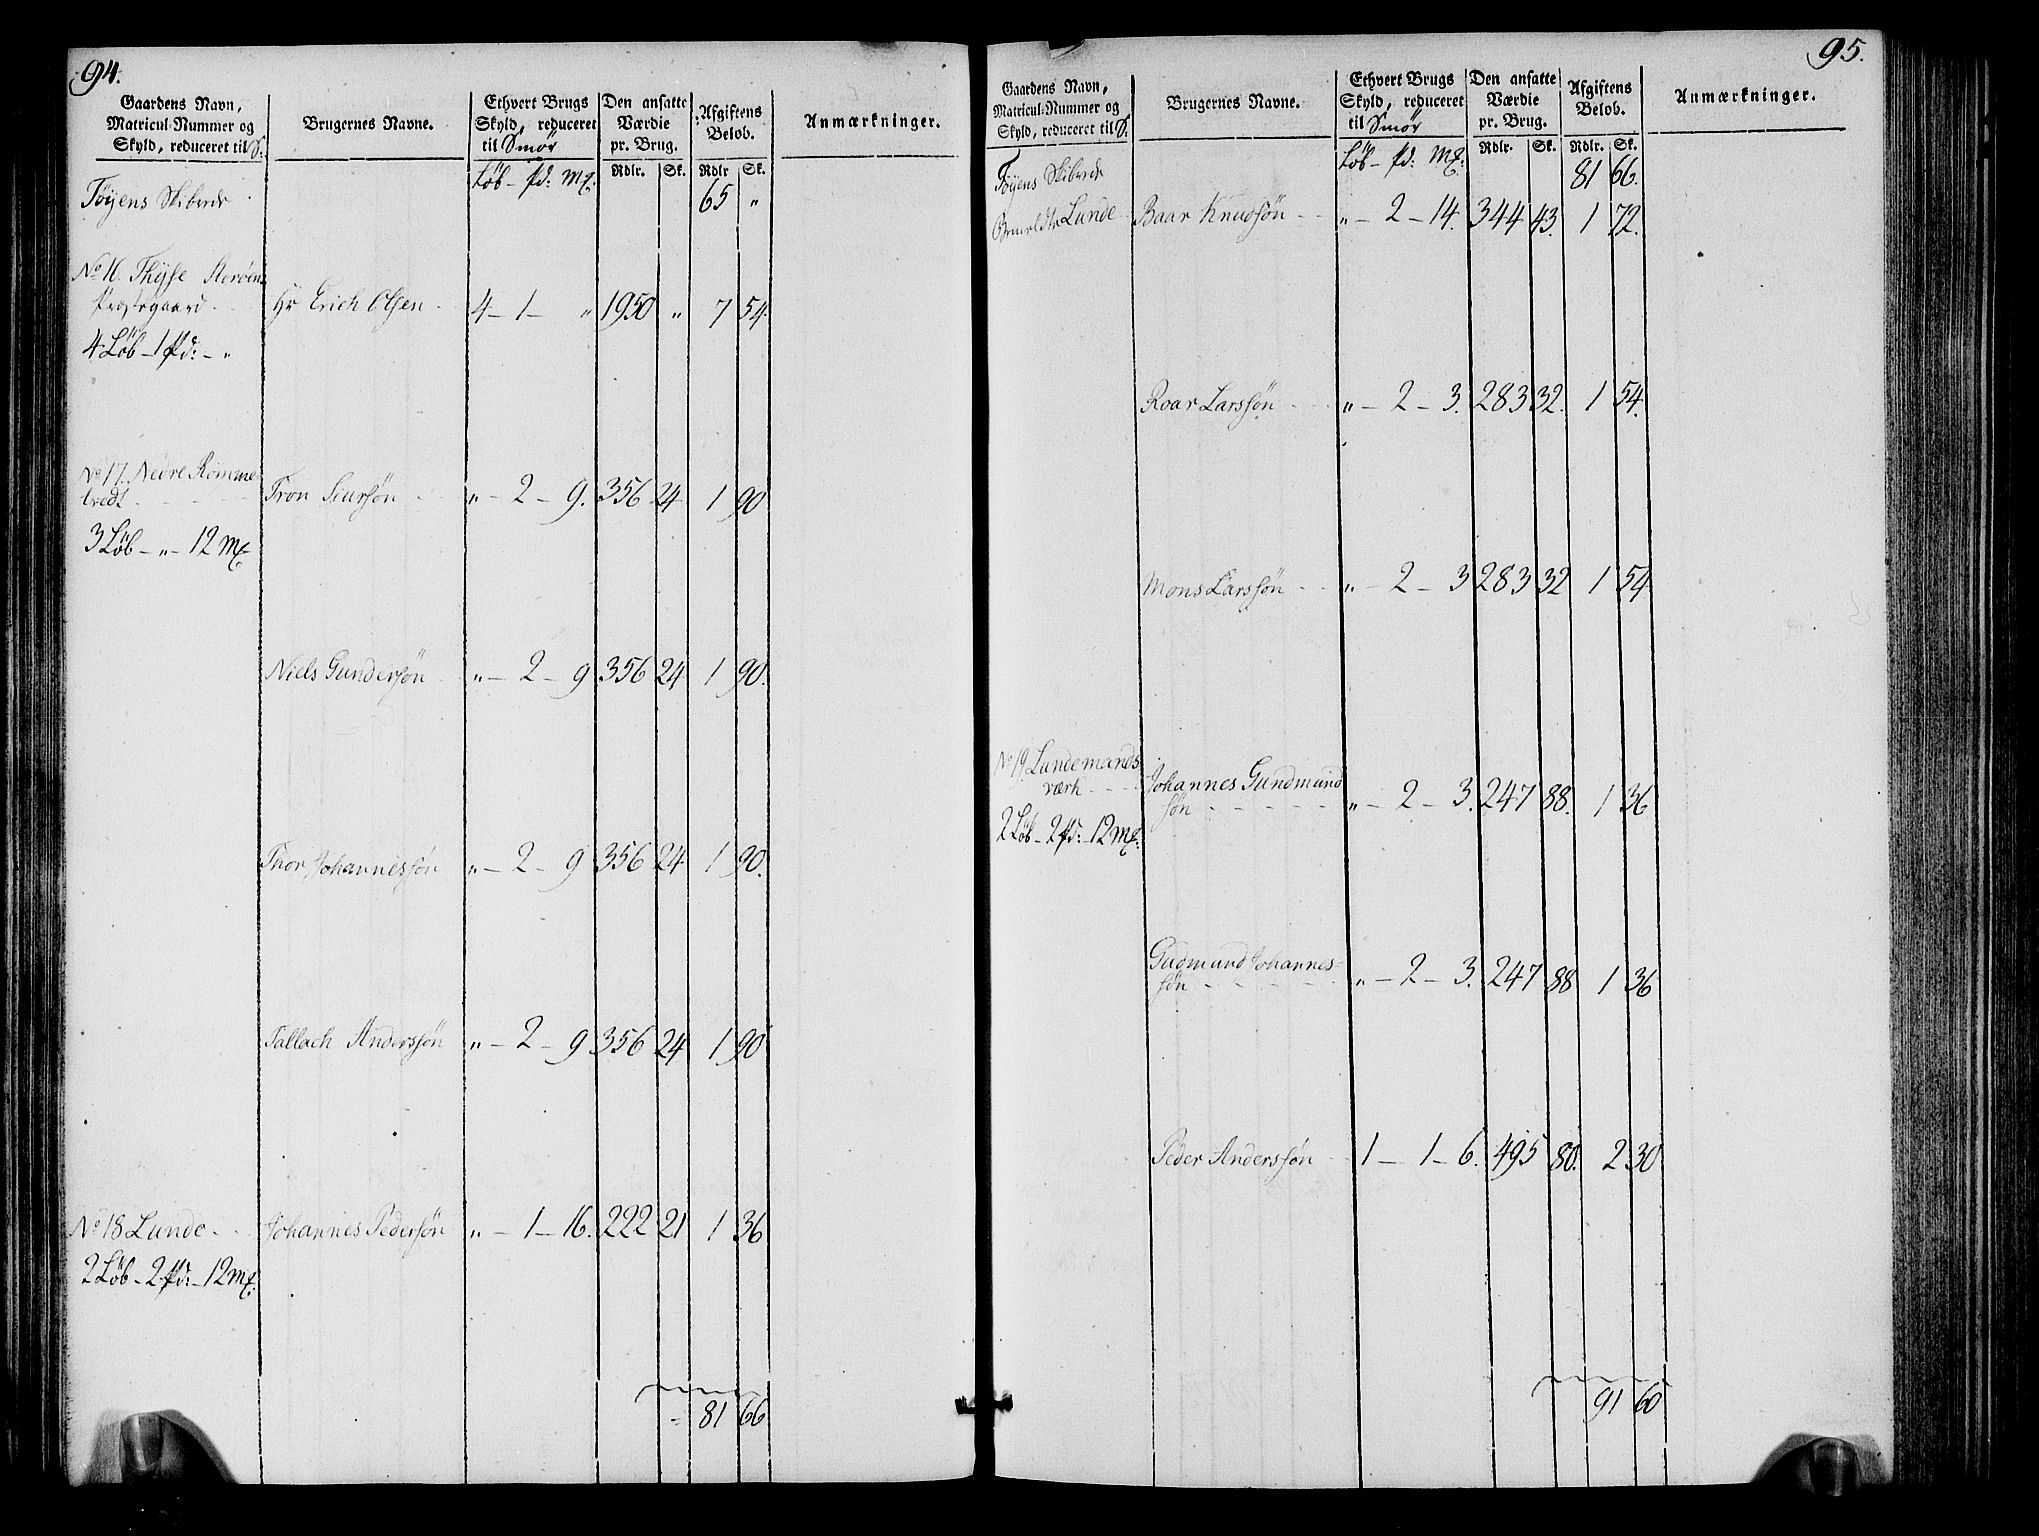 94.
Gaardens Navn, Matricul-Nummer og Skyld, reduceret til S:
Brugernes Navne.
Ethvert Brugs Skyld, reduceret til Smør
Den ansatte Værdie pr. Brug.
Afgiftens Beløb.
Anmærkninger.
Løb - Pd: Mk: Rdlr. Sk. Rdlr Sk.
Føÿens Skibrede 65 "
No 16. Thÿsse Storöens
Præstegaard Hr Erich Olsen 4 - 1 - " 1950 " 7 54
4 Løb - 1 Pd: - "
No 17. Nedre Rømme
tvedt Tron Siursön " - 2 - 9. 356 24 1 90
3 Løb - " - 12 Mk
Niels Gundersön " - 2 - 9 356 24 1 90.
Thor Johannessön " - 2 - 9 356 24 1 90.
Tallach Anderssön " - 2 - 9 356 24 1 90
No 18 Lunde Johannes Pedersön " - 1 - 16. 222 21 1 36
2 Løb - 2 Pd: - 12 Mk:
81 66
95.
Gaardens Navn, Matricul-Nummer og Skyld, reduceret til S.
Brugernes Navne.
Ethvert Brugs Skyld, reduceret til Smør
Den ansatte Værdie pr. Brug.
Afgiftens Beløb.
Anmærkninger.
Løb - Pd: Mk: Rdlr. Sk. Rdlr. Sk.
Føÿens Skibrede 81 66.
Lunde Baar Knudsön " - 2 - 14. 344 43. 1 72.
Roar Larssön " - 2 - 3. 283 32. 1 54.
Mons Larssön " - 2 - 3 283 32 1 54
No 19 Lundemands
værk Johannes Gundmund
søn " - 2 - 3. 247 88. 1 36
2 Løb - 2 Pd: - 12 Mk:
Gudmund Johannes-
søn " - 2 - 3. 247 88 1 36
Peder Anderssön 1 - 1 - 6. 495 80. 2 30
91 60